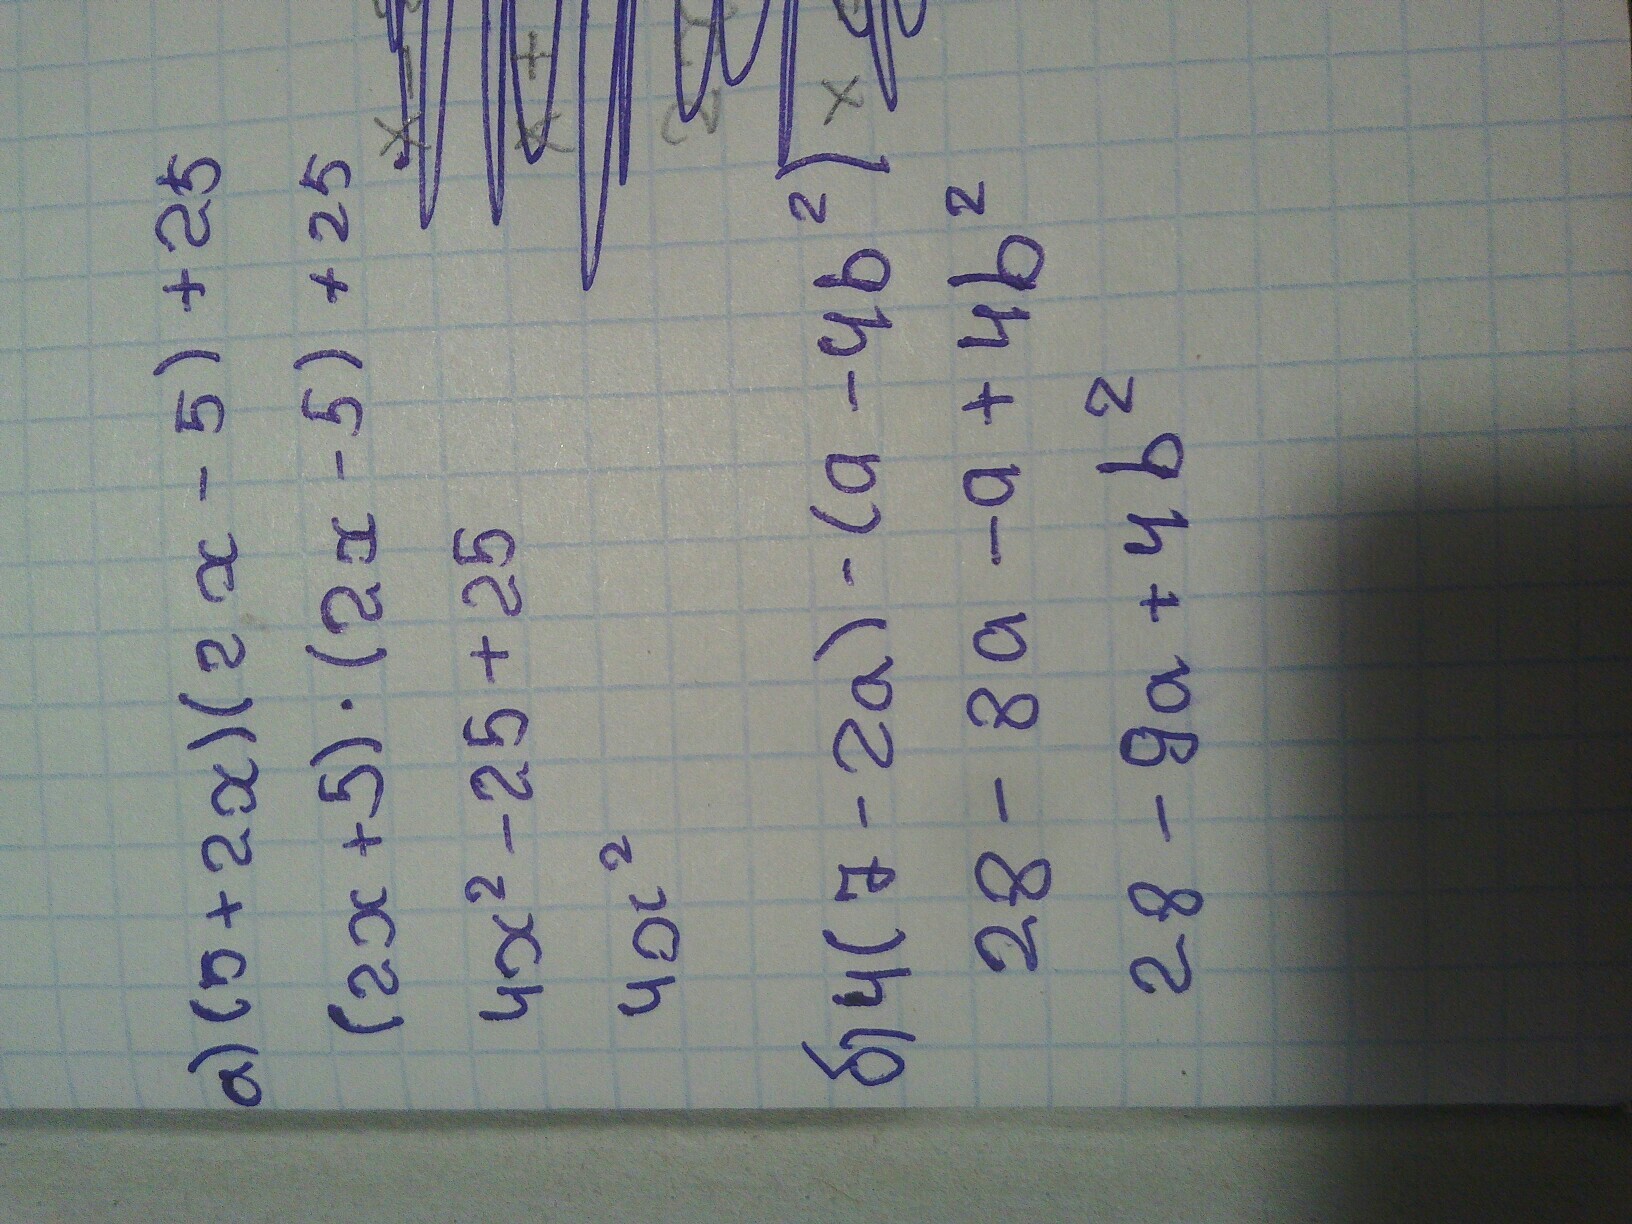 а) (5+2x)(2x-5)+25
(2x+5)·(2x-5)+25
4x²-25+25
4x²
б) 4(7-2a)-(a-4b²)
28-8a-a+4b²
28-9a+4b²